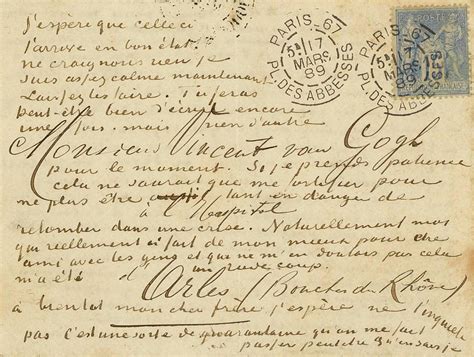 J'espère que celleci
t'arrive en bon état.
ne craignons rien je
suis assez calme maintenant
Laissez les faire. Tu feras
peut-être bien d'écrire encore
une fois. mais rien d'autre
PARIS_67
5E 17
MARS
89
PL. DES ABBESSES
PARIS_67
17
MARS
89
PL. DES ABBESSES
POSTE
Monsieur Vincent van Gogh
pour le moment. Si je prends patience
cela ne saurait que me fortifier pour
ne plus être tant en danger de
à l'Hopital
retomber dans une crise. Naturellement moi
qui reellement ai fait de mon mieux pour être
ami avec les gens et qui ne m'en doutais pas cela
m'a été un rude coup.
d'Arles (Bouches du Rhône)
à bientot mon cher frère j'espère ne t'inquiete
pas c'est une sorte de quarantaine qu'on me fait
passer peut être qu'en sais je